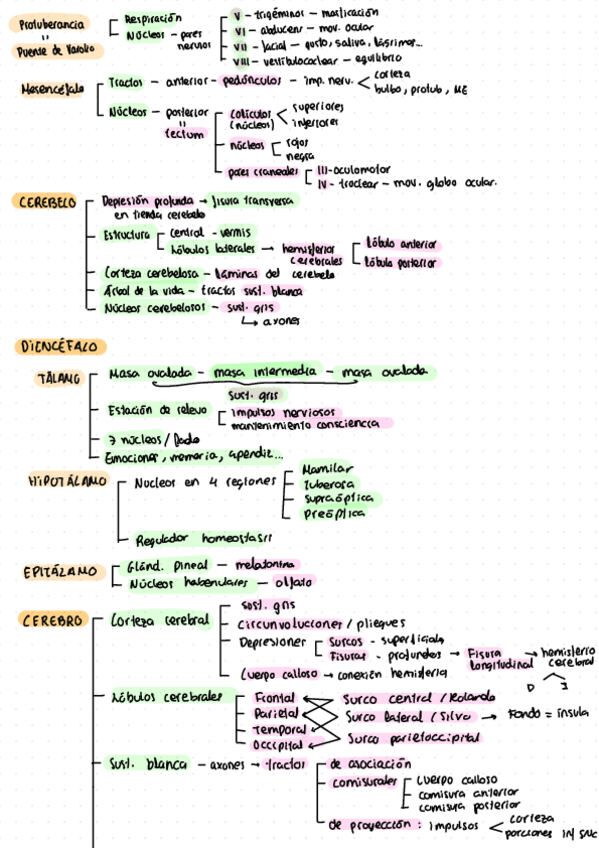 Protuberancia
"
Puente de Varolio
Respiración
Núcleos - pares nerviosos
V - trigéminos - masticación
VI - abducens - mov. ocular
VII - facial - gusto, saliva, lágrimas...
VIII - vestibulococlear - equilibrio
Mesencéfalo
Tractos - anterior - pedúnculos - imp. nerv.
corteza
bulbo, protub, ME
Núcleos - posterior
"
tectum
colículos (núcleos)
superiores
inferiores
núcleos
rojos
negra
pares craneales
III - oculomotor
IV - troclear - mov. globo ocular.
CEREBELO
Depresión profunda → fisura transversa
en tienda cerebelo
Estructura
central - vermis
lóbulos laterales → hemisferios cerebrales
lóbulo anterior
lóbulo posterior
Corteza cerebelosa - láminas del cerebelo
Árbol de la vida - tractos sust. blanca
Núcleos cerebelosos - sust. gris
↳ axones
DIENCÉFALO
TÁLAMO
Masa ovalada - masa intermedia - masa ovalada
sust. gris
Estación de relevo
impulsos nerviosos
mantenimiento consciencia
7 núcleos / lado
Emociones, memoria, apendiz...
HIPOTÁLAMO
Nucleos en 4 regiones
Mamilar
Tuberosa
Supraóptica
Preóptica
Regulador homeostasis
EPITÁLAMO
Gland. pineal - melatonina
Núcleos habenulares - olfato
CEREBRO
Corteza cerebral
sost. gris
circunvoluciones / pliegues
Depresiones
surcos - superficiales
Fisuras - profundas → Fisura longitudinal → hemisferio cerebral
D I
Cuerpo calloso → conexión hemisferios
Lóbulos cerebrales
Frontal
Parietal
Temporal
Occipital
Surco central / Rolando
Surco lateral / Silvio → Fondo = ínsula
Surco parietoccipital
Sust. blanca - axones → tractos
de asociación
comisurales
cuerpo calloso
comisura anterior
comisura posterior
de proyección : impulsos
corteza
porciones inf SNC